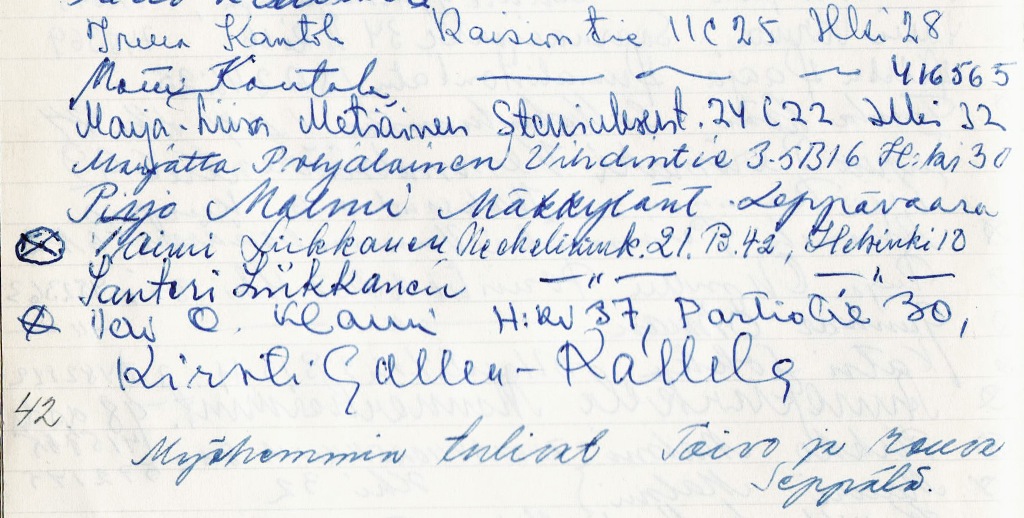 Kantola Raisiontie 11 C 25 Hlki 28
Kantola — — — 416565
Marja-Liisa Metiäinen Steniuksent. 24 C 22 Hlki 32
Marjatta Pohjalainen Vihdintie 3-5 B 16 H:ki 30
Pirjo Malmi Mäkkylänt. Leppävaara
Laimi Liikkanen Mechelinink. 21. B. 42, Helsinki 10
Santeri Liikkanen —"— —"—
O. H:ki 37, Partiotie 30,
Kirsti Gallen-Kallela
42.
Myöhemmin tulivat Toivo ja rouva
Seppälä.